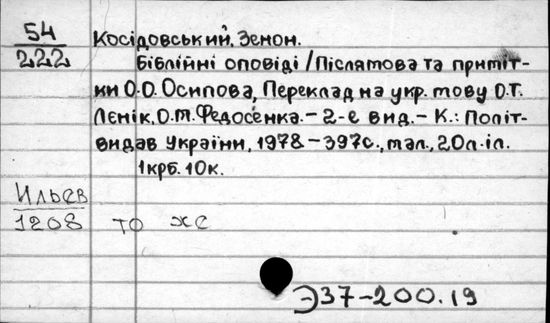 54 Косідовський, Зенон.
222 Біблійні оповіді / Післямова та приміт-
ки О.О. Осипова, Переклад на укр. мову О.Т.
Лєнік, О.М. Федосенка. – 2-е вид. – К.: Політ-
видав України, 1978 – 397с., мал., 20л. іл.
1крб. 10к.
Ильев
1208 то же
Э37-200.19